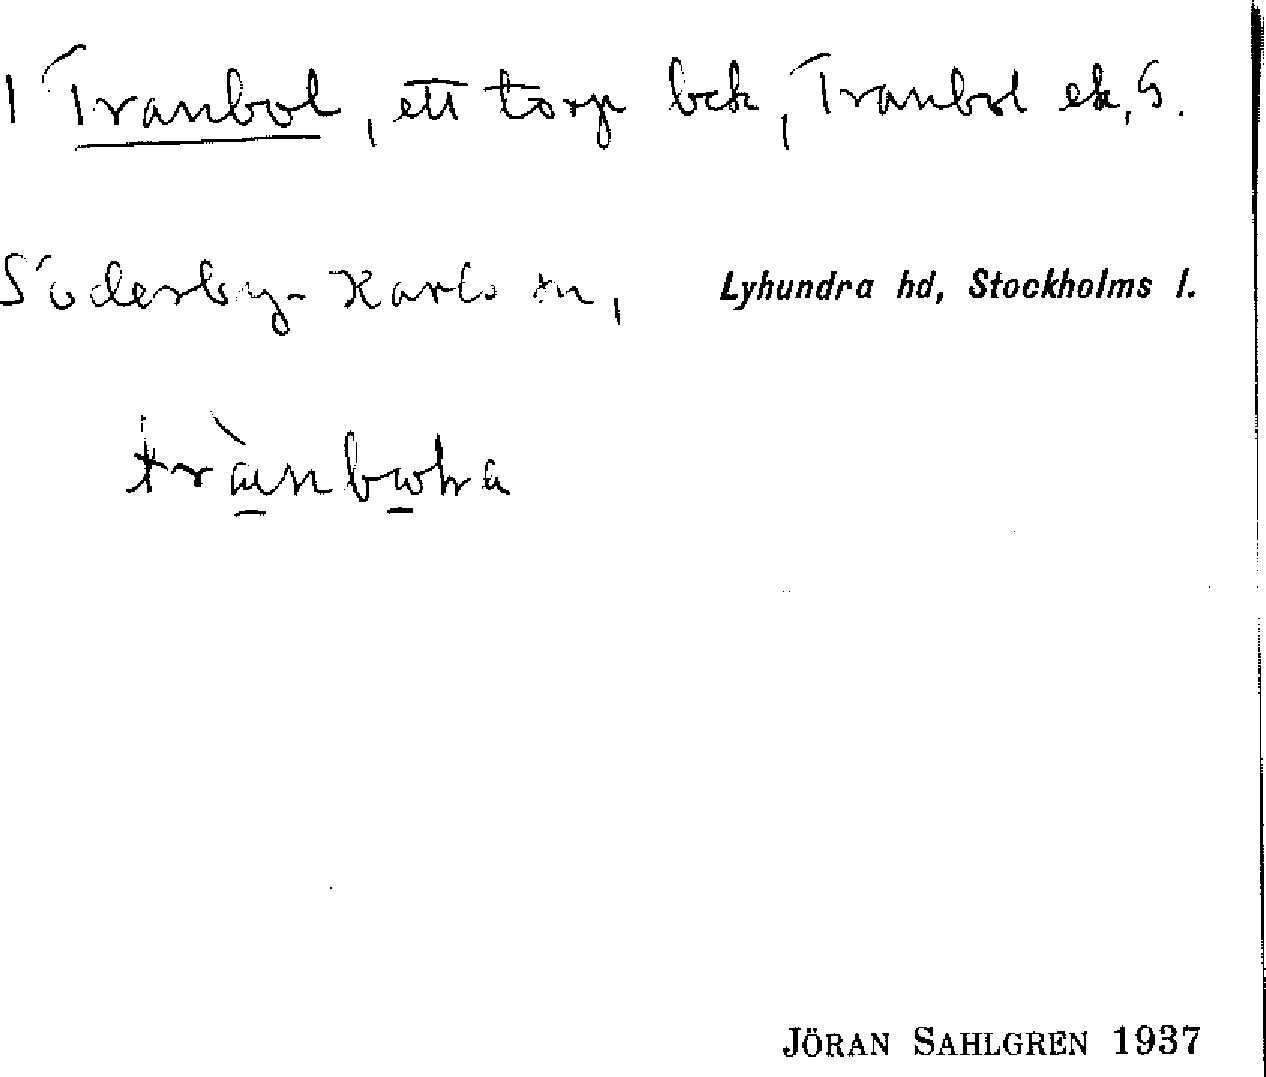 1 Tranbol, ett torp bck, Tranbol ek, G.
Söderby-Karls sn, Lyhundra hd, Stockholms l.
JÖRAN SAHLGREN 1937